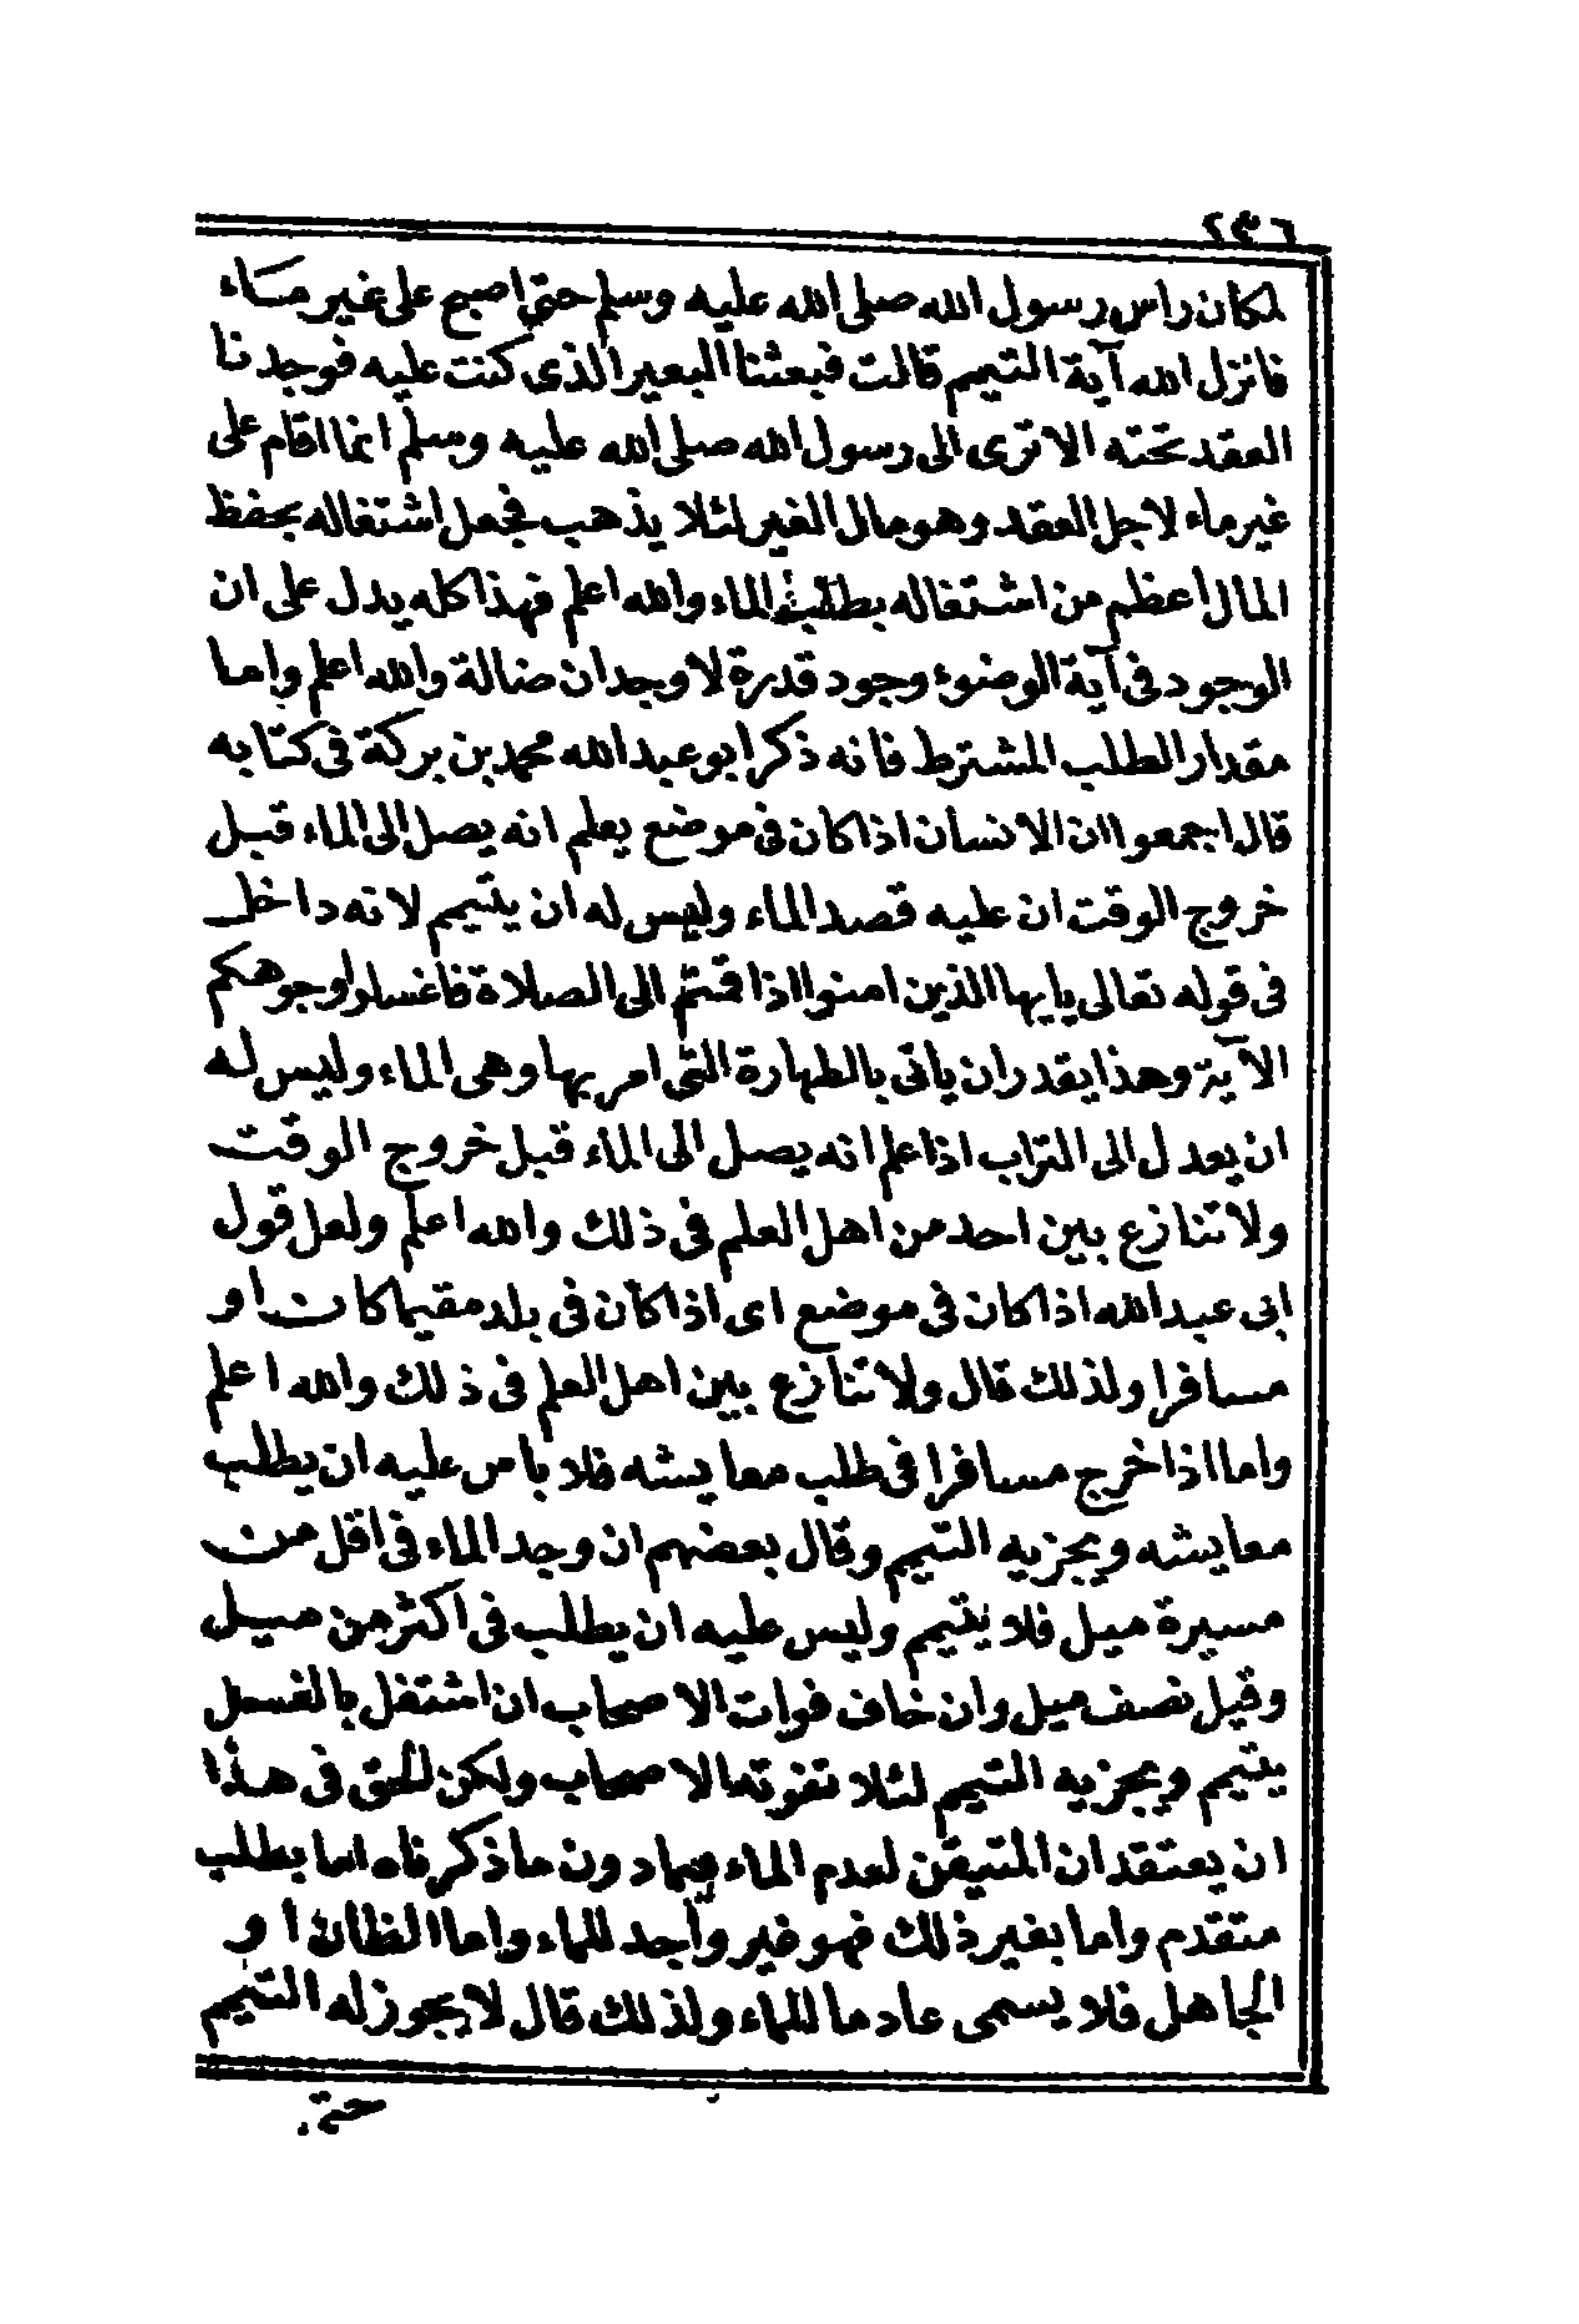 ٢٣٦
لمكان راس رسول الله صلى الله عليه وسلم حتى اصبح على غير ماء
فانزل الله آية التيمم قالت فبعثنا البعير الذى كنت عليه فوجدنا
العقد تحته الا ترى الى رسول الله صلى الله عليه وسلم انما اقام على
غير ماء لاجل العقد وهو مال الغير لئلا يذهب فجعل اشتغاله بحفظ
المال اعظم من اشتغاله بطلب الماء والله اعلم فهذا كله يدل على ان
الوجود فى آية الوضوء وجود قدرة لا وجدان ضالة والله اعلم واما
مقدار الطلب المشترط فانه ذكر ابو عبد الله محمد بن بركة فى كتابه
قال اجمعوا ان الانسان اذا كان فى موضع يعلم انه يصل الى الماء قبل
خروج الوقت ان عليه قصد الماء وليس له ان يتيمم لانه داخل
فى قوله تعالى يايها الذين امنوا اذا قمتم الى الصلاة فاغسلوا وجوهكم
الآية وهذا يقدر ان يأتى بالطهارة التى امر بها وهى الماء وليس له
ان يعدل الى التراب اذا علم انه يصل الى الماء قبل خروج الوقت
ولا تنازع بين احد من اهل العلم فى ذلك والله اعلم ولعل قول
ابى عبد الله اذا كان فى موضع اى اذا كان فى بلد مقيما كان او
مسافرا ولذلك قال ولا تنازع بين اهل العلم فى ذلك والله اعلم
واما اذا خرج مسافرا فى طلب معايشه فلا بأس عليه ان يطلب
معايشه ويجزيه التيمم وقال بعضهم ان وجد الماء فى اقل من
مسيرة ميل فلا يتيمم وليس عليه ان يطلب فى اكثر من ميل
وقيل نصف ميل وان خاف فوات الاصحاب ان اشتغل بالغسل
يتيمم ويجزيه التيمم لئلا تفوته الاصحاب ولكن الحق فى هذا
ان يعتقد ان المتيقن لعدم الماء فيما دون ما ذكرناه اما بطلب
متقدم واما بغير ذلك فهو غير واجد للماء واما الظان او
الجاهل فلا يسمى عادما للماء ولذلك قال لا يجوز له التيمم
حتى